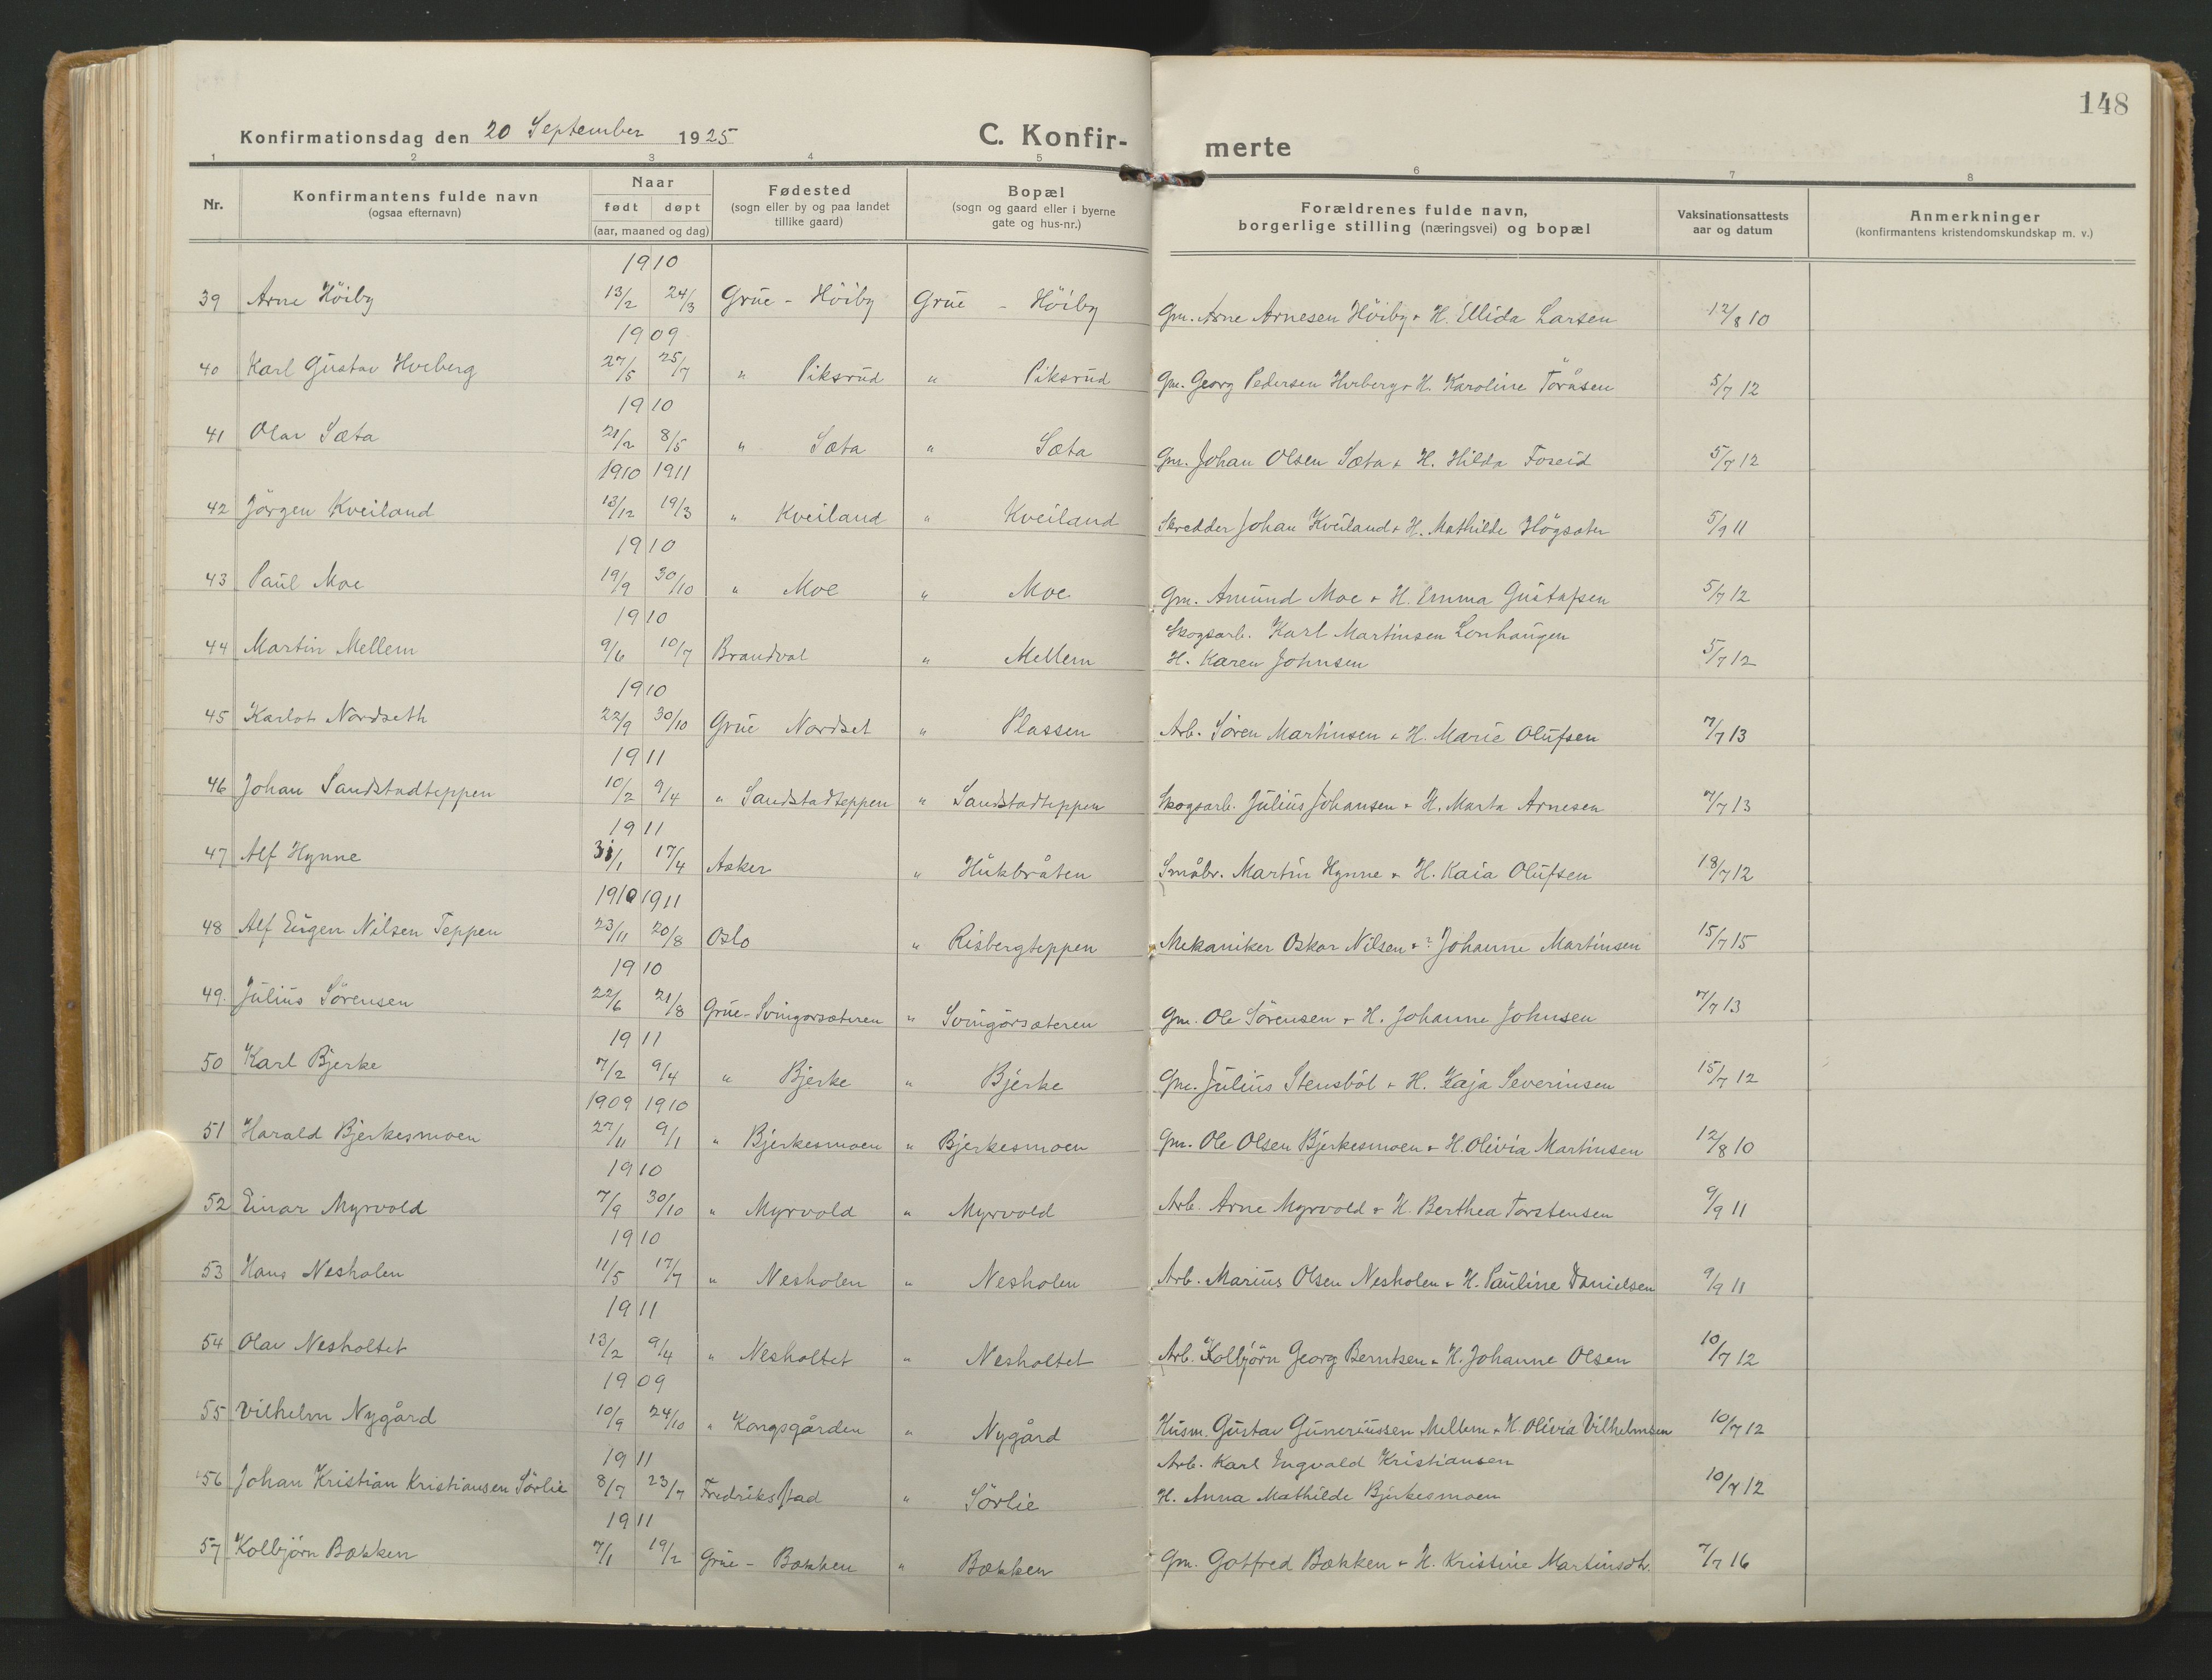 148
Konfirmationsdag den 20 September 1925 C. Konfir- merte
1 2 3 4 5 6 7 8
Nr. Konfirmantens fulde navn (ogsaa efternavn) Naar født døpt (aar, maaned og dag) Fødested (sogn eller by og paa landet tillike gaard) Bopæl (sogn og gaard eller i byerne gate og hus-nr.) Forældrenes fulde navn, borgerlige stilling (næringsvei) og bopæl Vaksinationsattests aar og datum Anmerkninger (konfirmantens kristendomskundskap m. v.)
1910
39 Arne Höiby 13/2 24/3 Grue - Höiby Grue - Höiby Gm. Arne Arnesen Höiby + H. Ellida Larsen 12/8 10
1909
40 Karl Gustav Hveberg 27/5 25/7 " Piksrud " Piksrud Gm. Georg Pedersen Hveberg + H. Karoline Toråsen 5/7 12
1910
41 Olav Sæta 21/2 8/5 " Sæta " Sæta Gm. Johan Olsen Sæta + H. Hilda Foseid 5/7 12
1910 1911
42 Jörgen Kveiland 13/12 19/3 " Kveiland " Kveiland Skredder Johan Kveiland + H. Mathilde Högsæter 5/9 11
1910
43 Paul Moe 19/9 30/10 " Moe " Moe Gm. Amund Moe + H. Emma Gustafsen 5/7 12
1910
Skogsarb. Karl Martinsen Lonhaugen
44 Martin Mellem 9/6 10/7 Brandval " Mellem H. Karen Johnsen 5/7 12
1910
45 Karlot Nordseth 22/9 30/10 Grue Nordset " Plassen Arb. Sören Martinsen + H. Marie Olufsen 7/7 13
1911
46 Johan Sandstadteppen 10/2 9/4 " Sandstadteppen " Sandstadteppen Skogsarb. Julius Johansen + H. Marta Arnesen 7/7 13
1911
47 Alf Hynne 31/1 17/4 Asker " Hukbråten Småbr. Martin Hynne + H. Kaia Olufsen 18/7 12
1910 1911
48 Alf Eugen Nilsen Teppen 23/11 20/8 Oslo " Risbergteppen Mekaniker Oskar Nilsen + ? Johanne Martinsen 15/7 15
1910
49. Julius Sörensen 22/6 21/8 Grue - Svingörsæteren " Svingörsæteren Gm. Ole Sörensen + H. Johanne Johnsen 7/7 13
1911
50 Karl Bjerke 7/2 9/4 " Bjerke " Bjerke Gm. Julius Stensböl + H. Kaja Severinsen 15/7 12
1909 1910
51 Harald Bjerkesmoen 27/11 9/1 " Bjerkesmoen " Bjerkesmoen Gm. Ole Olsen Bjerkesmoen + H. Olivia Martinsen 12/8 10
1910
52 Einar Myrvold 7/9 30/10 " Myrvold " Myrvold Arb. Arne Myrvold + H. Berthea Torstensen 9/9 11
1910
53 Hans Nesholen 11/5 17/7 " Nesholen " Nesholen Arb. Marius Olsen Nesholen + H. Pauline Danielsen 9/9 11
1911
54 Olav Nesholtet 13/2 9/4 " Nesholtet " Nesholtet Arb. Kolbjörn Georg Berntsen + H. Johanne Olsen 10/7 12
1909
55 Vilhelm Nygård 10/9 24/10 " Kongsgården " Nygård Husm. Gustav Guneriussen Mellem + H. Olivia Vilhelmsen 10/7 12
1911
Arb. Karl Ingvald Kristiansen
56 Johan Kristian Kristiansen Sörlie 8/7 23/7 Fredrikstad " Sörlie H. Anna Mathilde Bjerkesmoen 10/7 12
1911
57 Kolbjörn Bækken 7/1 19/2 Grue - Bækken " Bækken Gm. Gotfred Bækken + H. Kristine Martinsdtr. 7/7 16